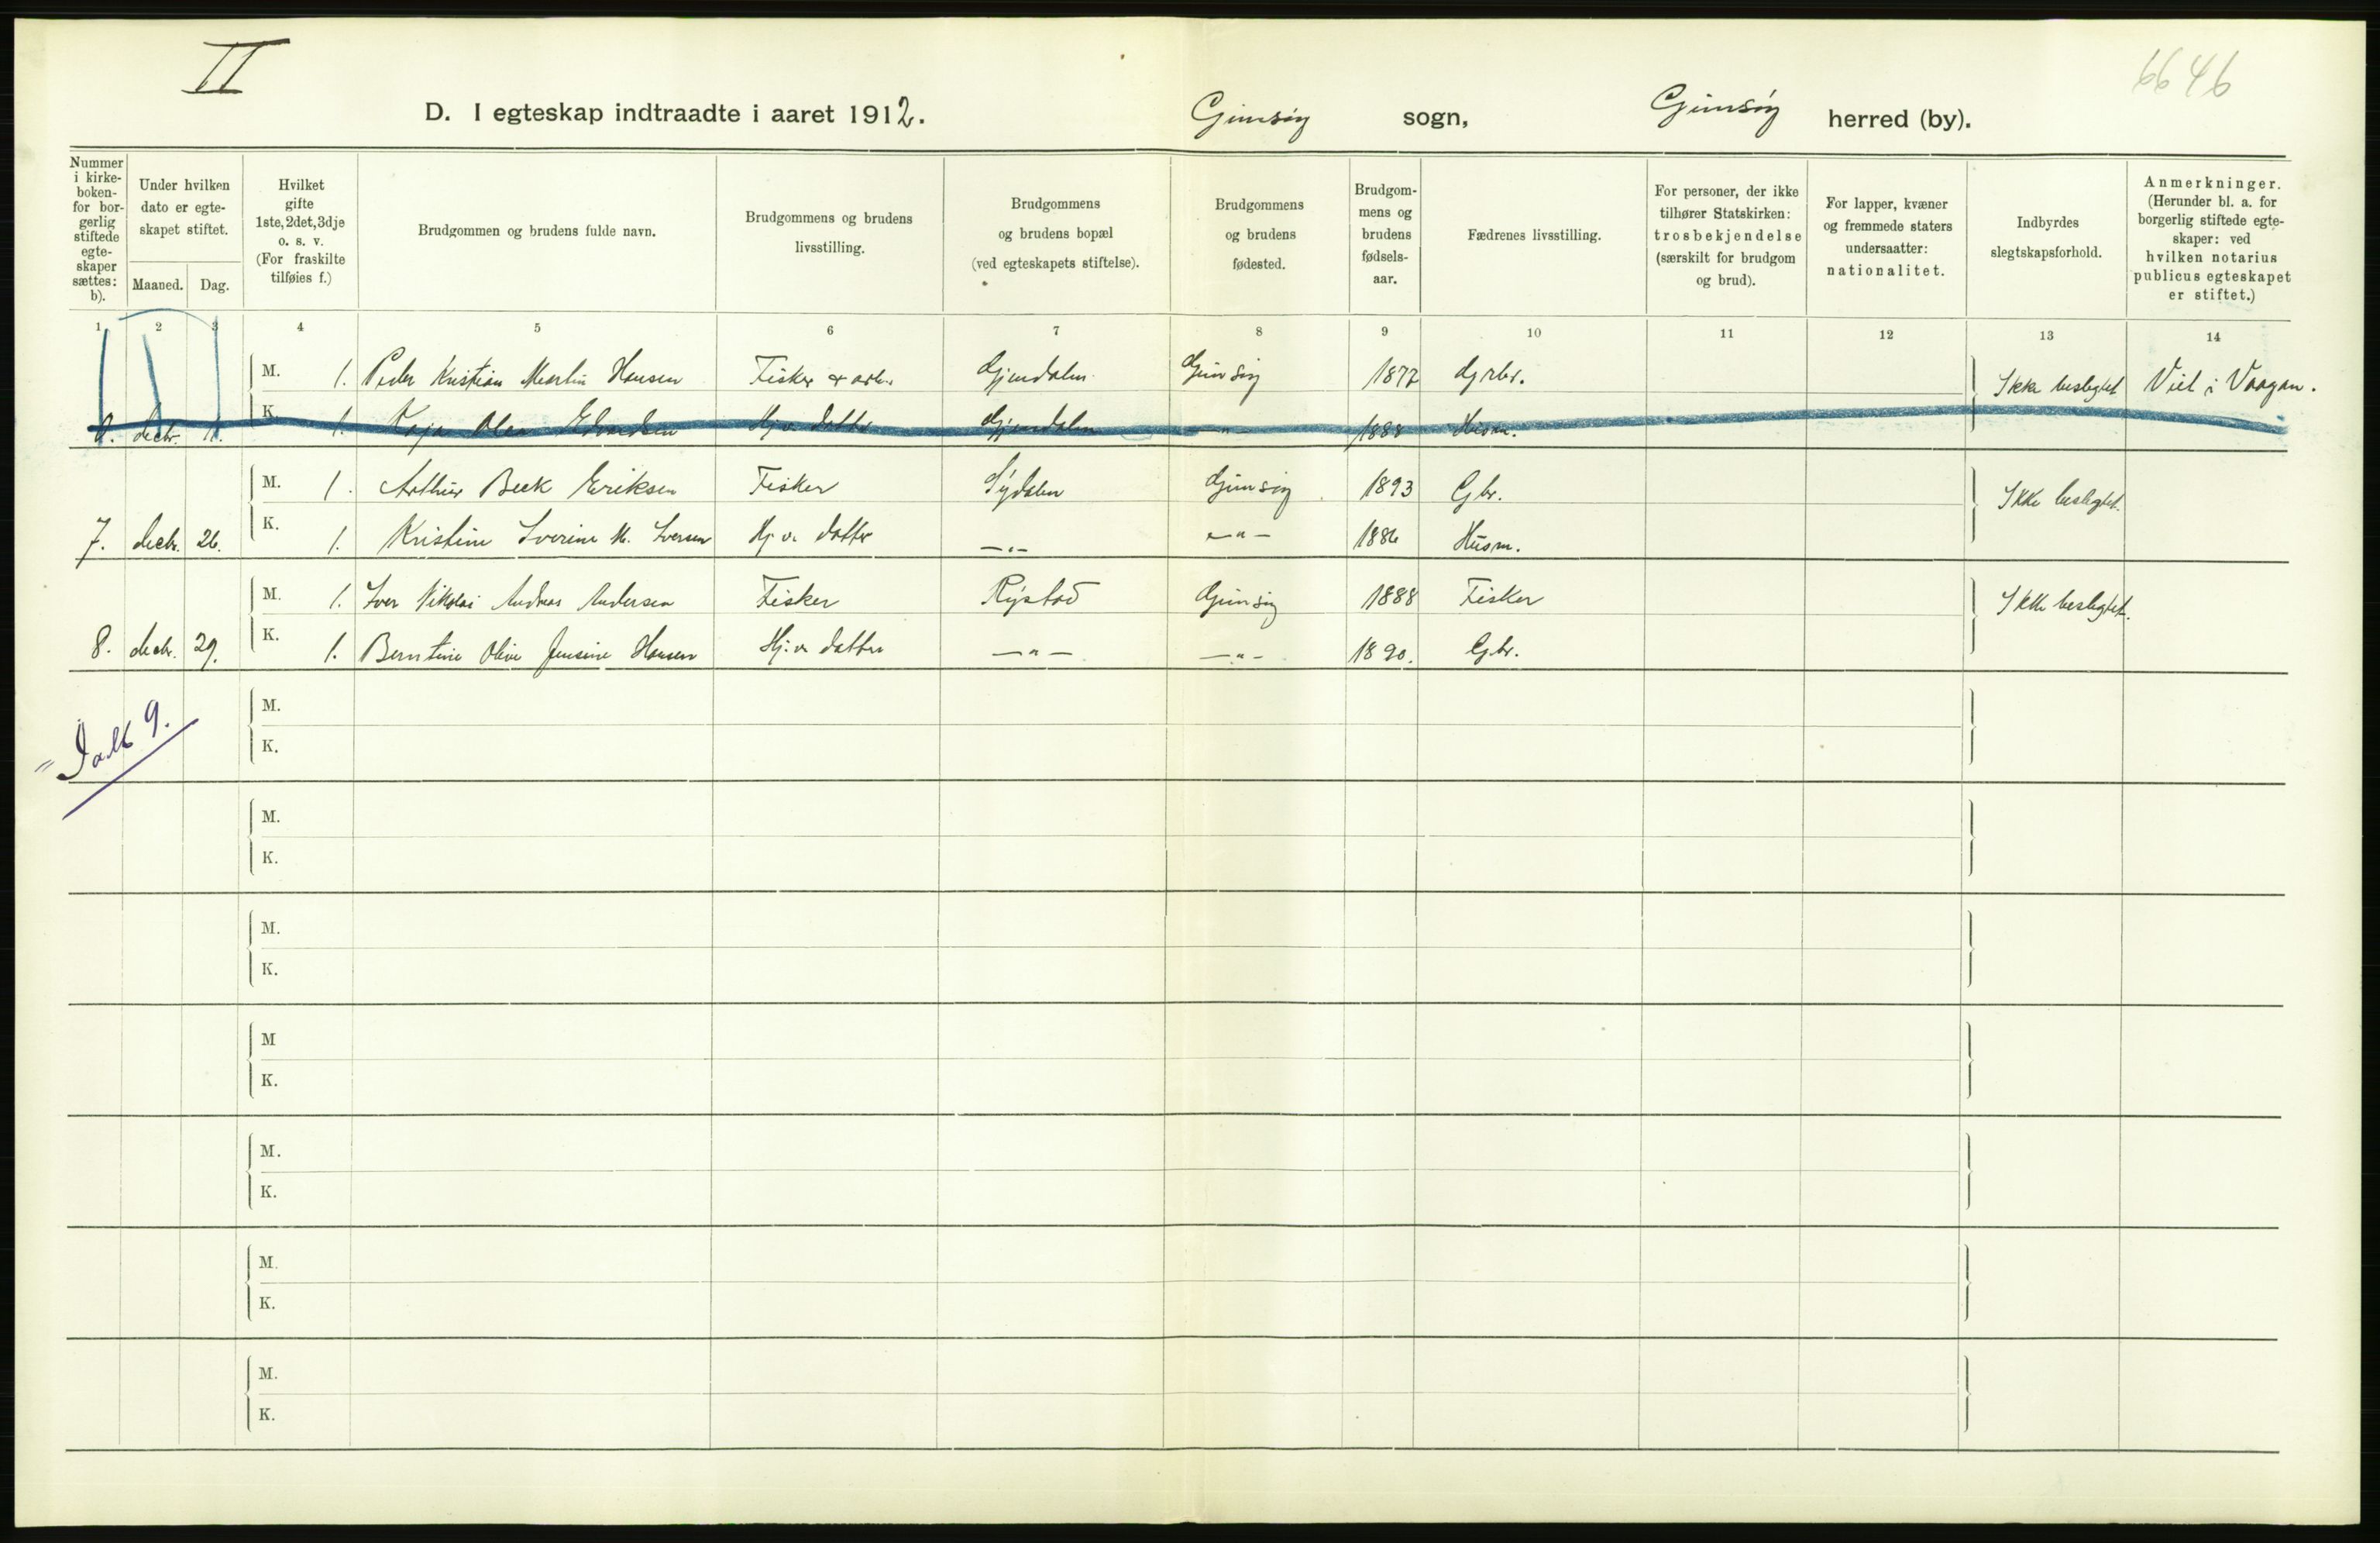 II
6646
D. I egteskap indtraadte i aaret 1912. Gimsøy sogn, Gimsøy herred (by).
Nummer i kirke-boken- for bor-gerlig stiftede egte-skaper sættes: b).
Under hvilken dato er egte-skapet stiftet.
Maaned. Dag.
Hvilket gifte 1ste, 2det, 3dje o. s. v. (For fraskilte tilføies f.)
Brudgommen og brudens fulde navn.
Brudgommens og brudens livsstilling.
Brudgommens og brudens bopæl (ved egteskapets stiftelse).
Brudgommens og brudens fødested.
Brudgom-mens og brudens fødsels-aar.
Fædrenes livsstilling.
For personer, der ikke tilhører Statskirken: trosbekjendelse (særskilt for brudgom og brud).
For lapper, kvæner og fremmede staters undersaatter: nationalitet.
Indbyrdes slegtskapsforhold.
Anmerkninger. (Herunder bl. a. for borgerlig stiftede egte-skaper: ved hvilken notarius publicus egteskapet er stiftet.)
1 2 3 4 5 6 7 8 9 10 11 12 13 14
M. 1. Peder Kristian Martin Hansen Fisker & arb. Gjendalen Gimsøy 1877 Grbr. Ikke beslegtet Viet i Vaagan.
decbr. 11. K. 1. Kaja Olea Edvardsen Hj.v. datter Gjendalen -"- 1888 Husm.
M. 1. Arthur Beck Eriksen Fisker Sydalen Gimsøy 1893 Gbr. Ikke beslegtet.
7. decbr. 26. K. 1. Kristine Iverine M. Iversen Hj. v. datter -"- -"- 1886 Husm.
M. 1. Iver Nikolai Andreas Andersen Fisker Rystad Gimsøy 1888 Fisker Ikke beslegtet.
8. decbr. 29. K. 1. Berntine Olive Jensine Hansen Hj. v. datter -"- -"- 1890. Gbr.
M.
"Ialt 9.
K.
M.
K.
M.
K.
M
K.
M.
K.
M.
K.
M.
K.